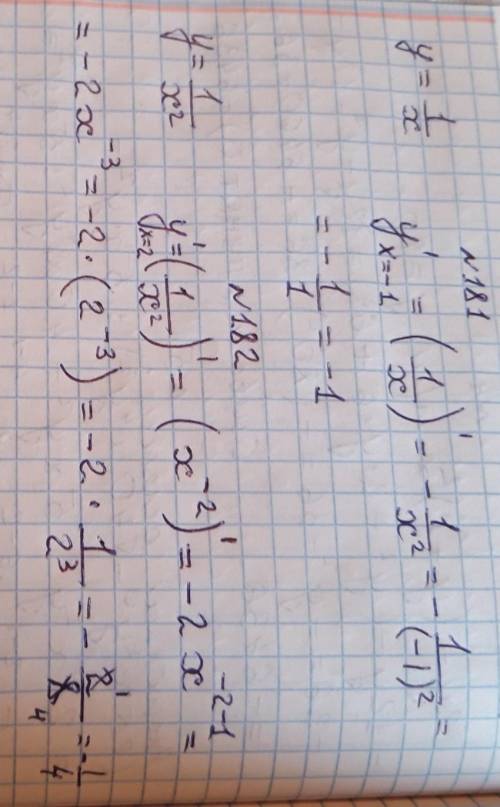 №181
y = 1/x   y'ₓ₌₋₁ = (1/x)' = - 1/x² = - 1/(-1)² =
= - 1/1 = -1
№182
y = 1/x²   y'ₓ₌₂ = (1/x²)' = (x⁻²)' = -2x⁻²⁻¹ =
= -2x⁻³ = -2·(2⁻³) = -2· 1/2³ = - 2̸¹/8̸₄ = -1/4